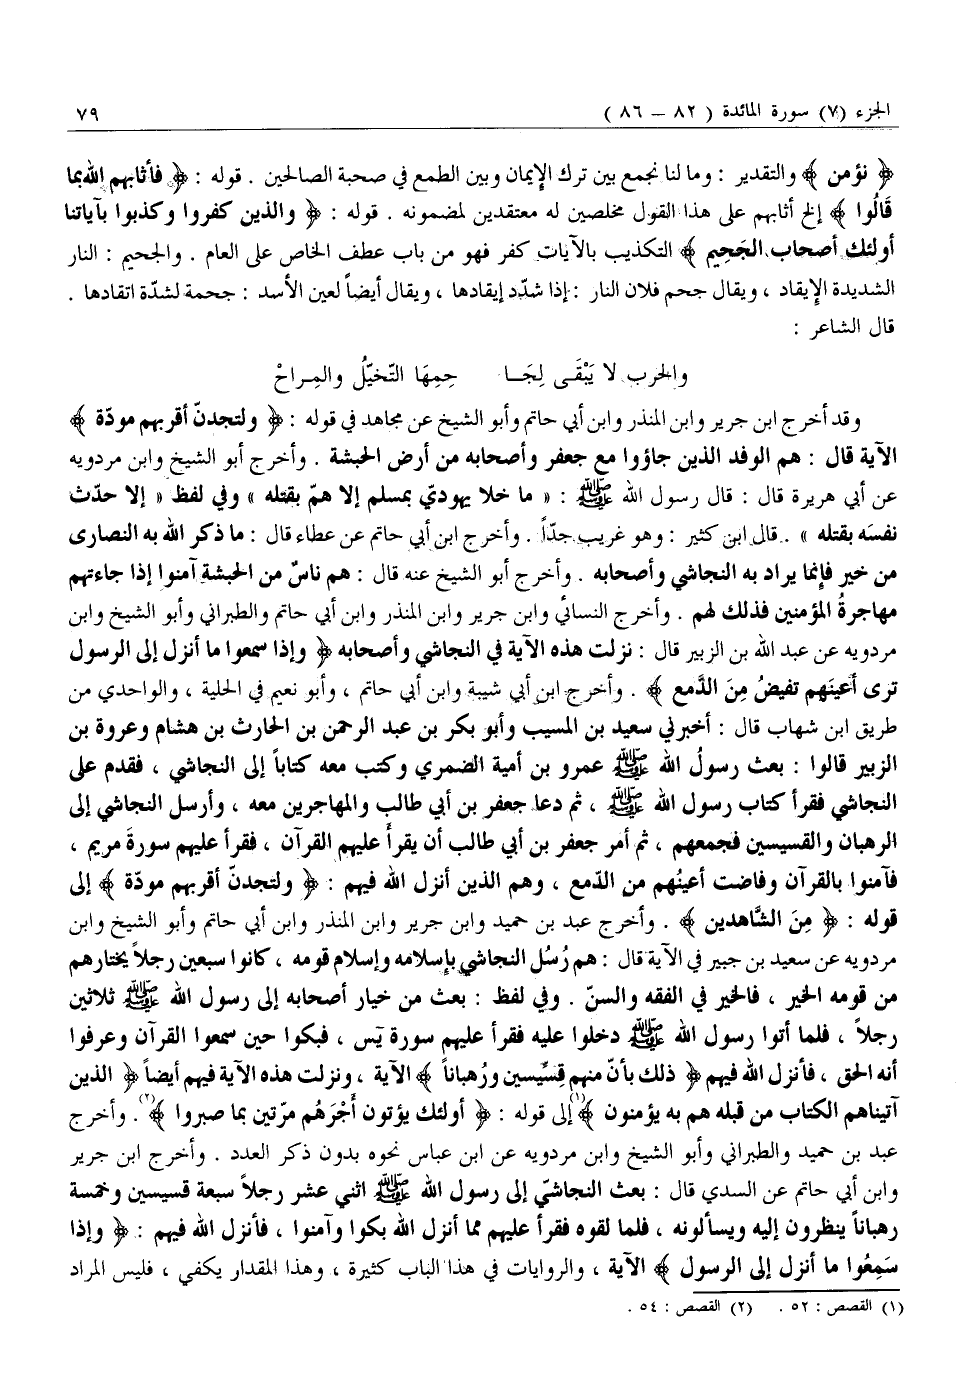 الجزء (٧) سورة المائدة ( ٨٢ – ٨٦ ) ٧٩
﴿ نؤمن ﴾ والتقدير : وما لنا نجمع بين ترك الإيمان وبين الطمع في صحبة الصالحين . قوله : ﴿ فأثابهم الله بما
قَالُوا ﴾ إلخ أثابهم على هذا القول مخلصين له معتقدين لمضمونه . قوله : ﴿ والذين كفروا وكذبوا بآياتنا
أولئك أصحاب الجَحِيم ﴾ التكذيب بالآيات كفر فهو من باب عطف الخاص على العام . والجحيم : النار
الشديدة الإيقاد ، ويقال جحم فلان النار : إذا شدّد إيقادها ، ويقال أيضاً لعين الأسد : جحمة لشدّة اتقادها .
قال الشاعر :
والحرب لا يَبْقَى لِجَـا حِمِهَا التّخيّلُ والمِراحْ
وقد أخرج ابن جرير وابن المنذر وابن أبي حاتم وأبو الشيخ عن مجاهد في قوله : ﴿ ولتجدنّ أقربهم مودّة ﴾
الآية قال : هم الوفد الذين جاؤوا مع جعفر وأصحابه من أرض الحبشة . وأخرج أبو الشيخ وابن مردويه
عن أبي هريرة قال : قال رسول الله ﷺ : « ما خلا يهوديّ بمسلم إلا همّ بقتله » وفي لفظ « إلا حدّث
نفسَه بقتله » . قال ابن كثير : وهو غريب جدّاً . وأخرج ابن أبي حاتم عن عطاء قال : ما ذكر الله به النصارى
من خير فإنما يراد به النجاشي وأصحابه . وأخرج أبو الشيخ عنه قال : هم ناسٌ من الحبشة آمنوا إذا جاءتهم
مهاجرةُ المؤمنين فذلك لهم . وأخرج النسائي وابن جرير وابن المنذر وابن أبي حاتم والطبراني وأبو الشيخ وابن
مردويه عن عبد الله بن الزبير قال : نزلت هذه الآية في النجاشي وأصحابه ﴿ وإذا سمعوا ما أنزل إلى الرسول
ترى أعينَهم تفيضُ مِنَ الدَّمع ﴾ . وأخرج ابن أبي شيبة وابن أبي حاتم ، وأبو نعيم في الحلية ، والواحدي من
طريق ابن شهاب قال : أخبرني سعيد بن المسيب وأبو بكر بن عبد الرحمن بن الحارث بن هشام وعروة بن
الزبير قالوا : بعث رسولُ الله ﷺ عمرو بن أمية الضمري وكتب معه كتاباً إلى النجاشي ، فقدم على
النجاشي فقرأ كتاب رسول الله ﷺ ، ثم دعا جعفر بن أبي طالب والمهاجرين معه ، وأرسل النجاشي إلى
الرهبان والقسيسين فجمعهم ، ثم أمر جعفر بن أبي طالب أن يقرأ عليهم القرآن ، فقرأ عليهم سورةَ مريم ،
فآمنوا بالقرآن وفاضت أعينُهم من الدّمع ، وهم الذين أنزل الله فيهم : ﴿ ولتجدنّ أقربهم مودّة ﴾ إلى
قوله : ﴿ مِنَ الشَّاهدين ﴾ . وأخرج عبد بن حميد وابن جرير وابن المنذر وابن أبي حاتم وأبو الشيخ وابن
مردويه عن سعيد بن جبير في الآية قال : هم رُسُل النجاشي بإسلامه وإسلام قومه ، كانوا سبعين رجلاً يختارهم
من قومه الخير ، فالخير في الفقه والسنّ . وفي لفظ : بعث من خيار أصحابه إلى رسول الله ﷺ ثلاثين
رجلاً ، فلما أتوا رسول الله ﷺ دخلوا عليه فقرأ عليهم سورة يٓس ، فبكوا حين سمعوا القرآن وعرفوا
أنه الحق ، فأنزل الله فيهم ﴿ ذلك بأنّ منهم قِسِّيسين ورُهباناً ﴾ الآية ، ونزلت هذه الآية فيهم أيضاً ﴿ الذين
آتيناهم الكتاب من قبله هم به يؤمنون ﴾(١) إلى قوله : ﴿ أولئك يؤتون أَجْرَهُم مرّتين بما صبروا ﴾(٢) . وأخرج
عبد بن حميد والطبراني وأبو الشيخ وابن مردويه عن ابن عباس نحوه بدون ذكر العدد . وأخرج ابن جرير
وابن أبي حاتم عن السدي قال : بعث النجاشيّ إلى رسول الله ﷺ اثني عشر رجلاً سبعة قسيسين وخمسة
رهباناً ينظرون إليه ويسألونه ، فلما لقوه فقرأ عليهم مما أنزل الله بكوا وآمنوا ، فأنزل الله فيهم : ﴿ وإذا
سَمِعُوا ما أنزل إلى الرسول ﴾ الآية ، والروايات في هذا الباب كثيرة ، وهذا المقدار يكفي ، فليس المراد
(١) القصص : ٥٢ . (٢) القصص : ٥٤ .